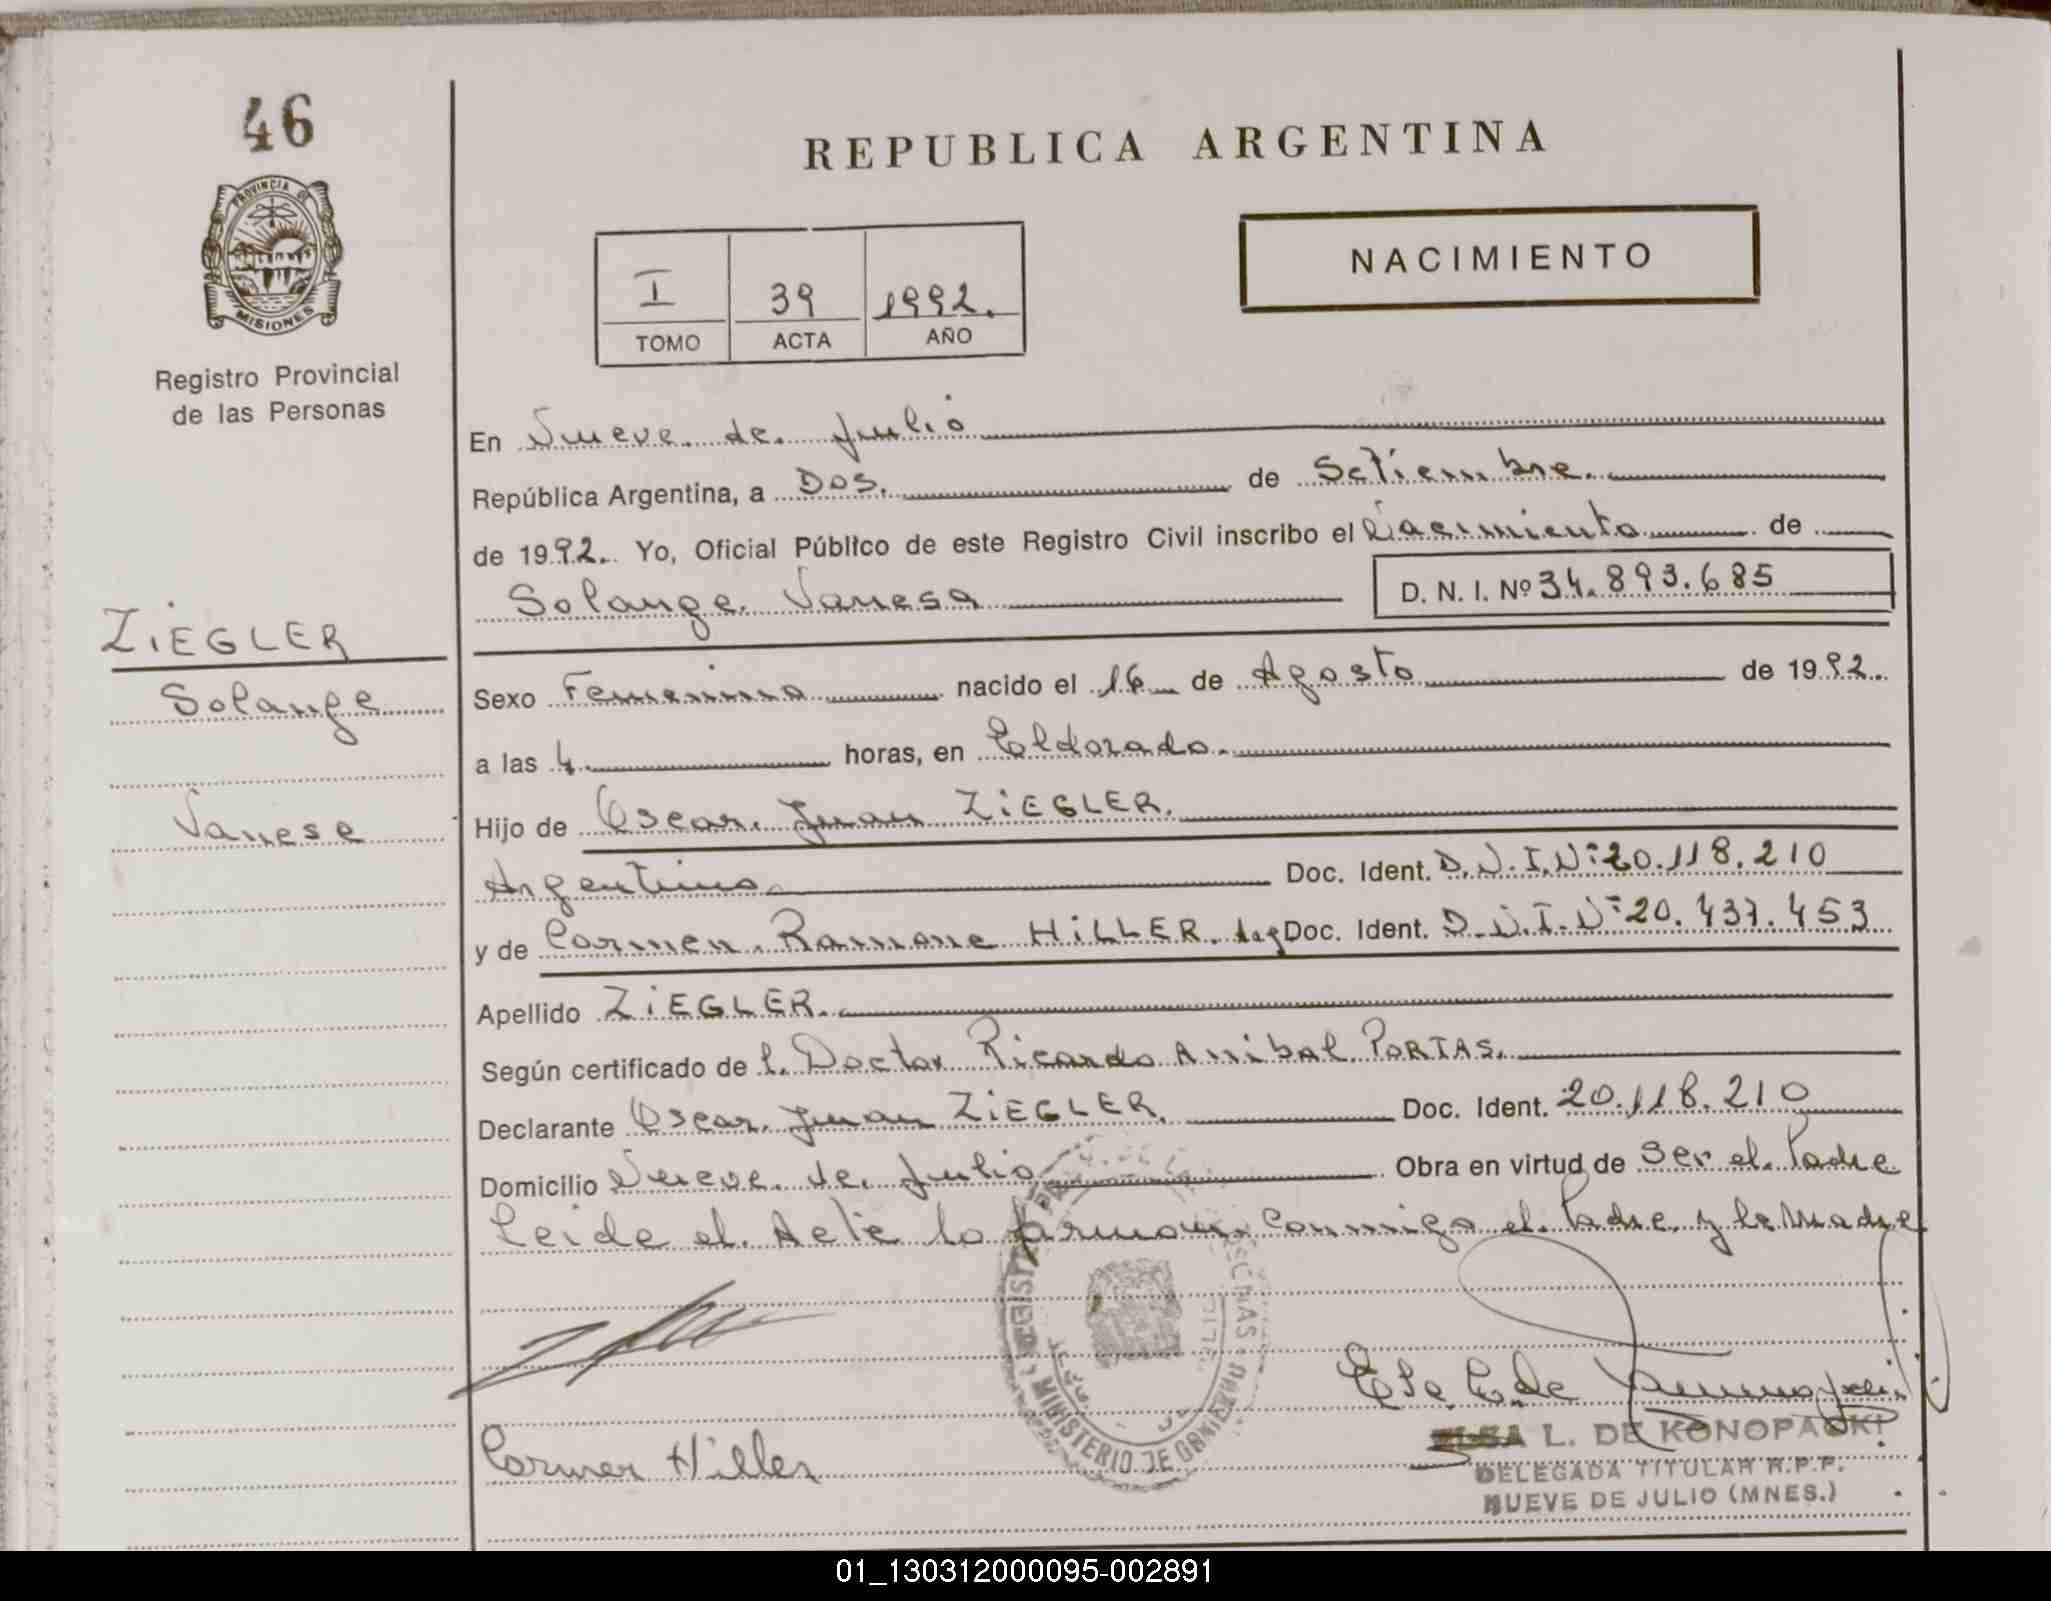 46
REPUBLICA ARGENTINA
PROVINCIA DE
MISIONES
Registro Provincial
de las Personas
NACIMIENTO
I 39 1992.
TOMO ACTA AÑO
En Nueve de Julio
República Argentina, a Dos. de Setiembre.
de 1992. Yo, Oficial Público de este Registro Civil inscribo el Nacimiento de
Solange Vanesa D. N. I. Nº 34.893.685
ZiEGLER
Solange
Vanesa
Sexo Femenino nacido el 16 de Agosto de 1992.
a las 4 horas, en Eldorado.
Hijo de Oscar Juan ZiEGLER.
Argentino Doc. Ident. D.N.I.Nº 20.118.210
y de Carmen Ramona HiLLER. Arg Doc. Ident. D.N.I.Nº 20.437.453
Apellido ZiEGLER.
Según certificado de l. Doctor Ricardo Anibal PORTAS.
Declarante Oscar Juan ZiEGLER. Doc. Ident. 20.118.210
Domicilio Nueve de Julio Obra en virtud de Ser el Padre
Leida el Acta la firman conmigo el Padre y la Madre
MINISTERIO DE GOBIERNO
Carmen Hiller
L. DE KONOPACKI
DELEGADA TITULAR R.P.P.
NUEVE DE JULIO (MNES.)
01_130312000095-002891